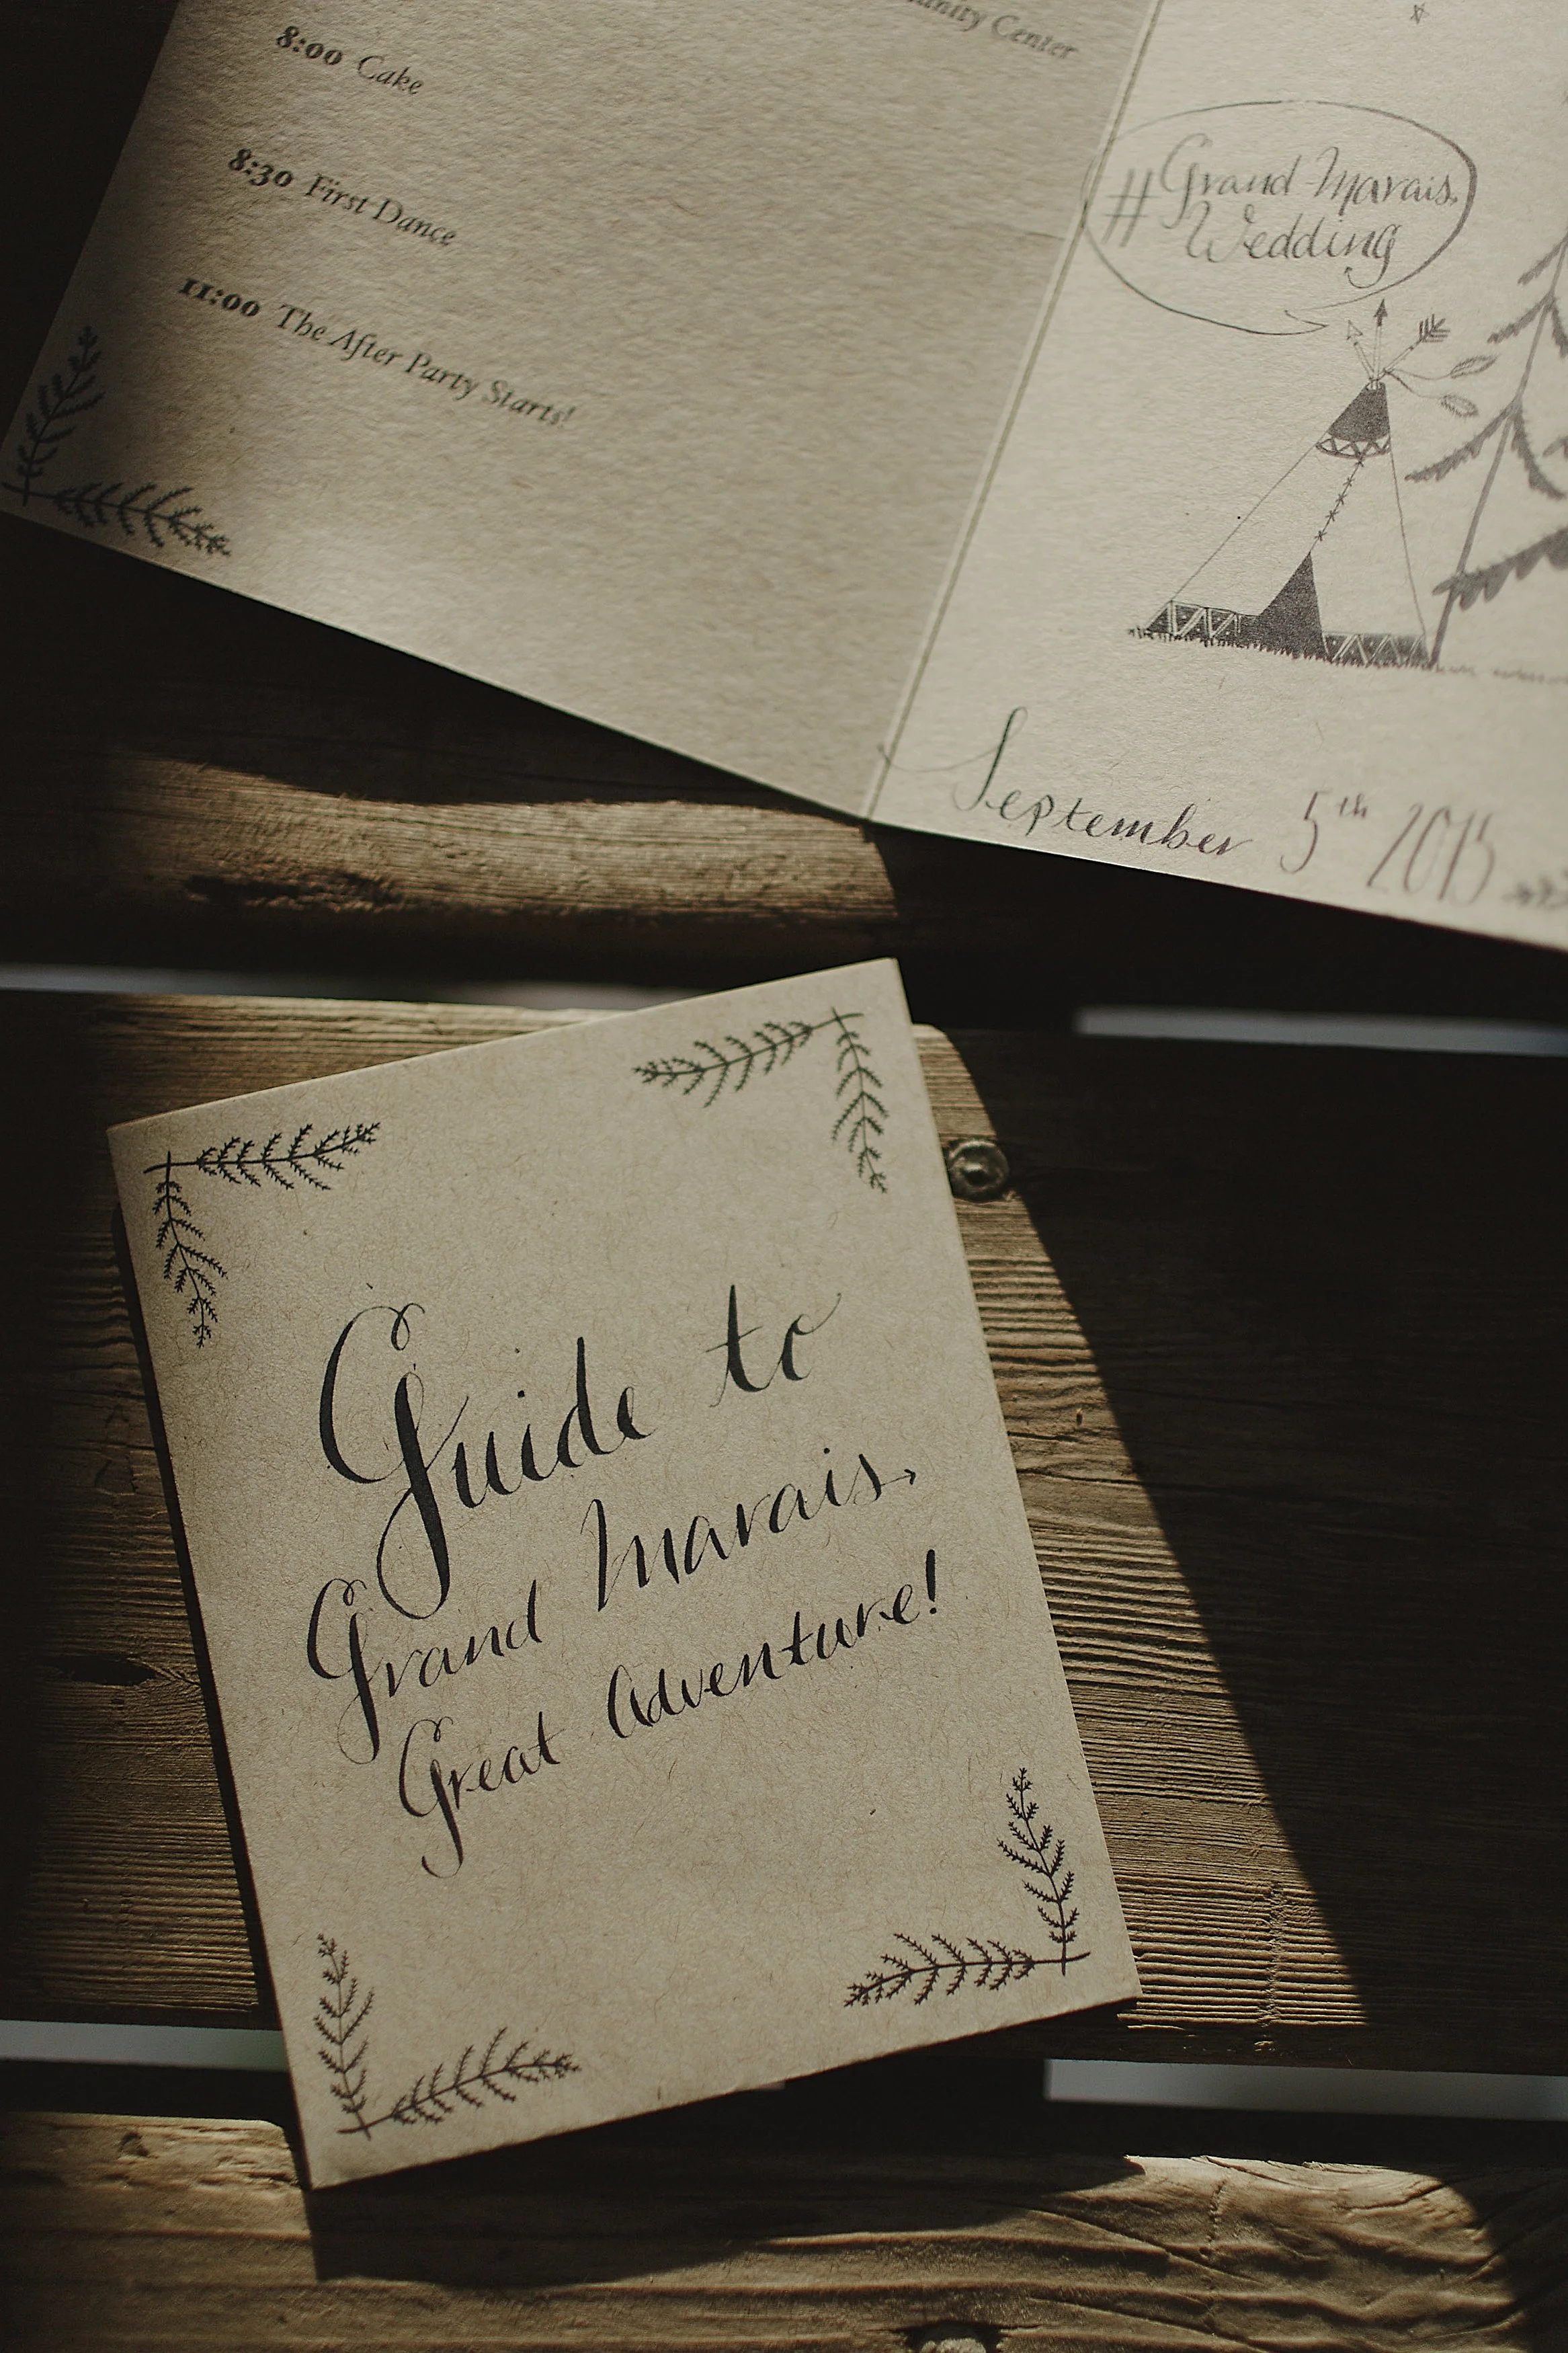 Center
8:00 Cake
8:30 First Dance
11:00 The After Party Starts!
#Grand Marais
Wedding
September 5th 2015
Guide to
Grand Marais,
Great Adventure!